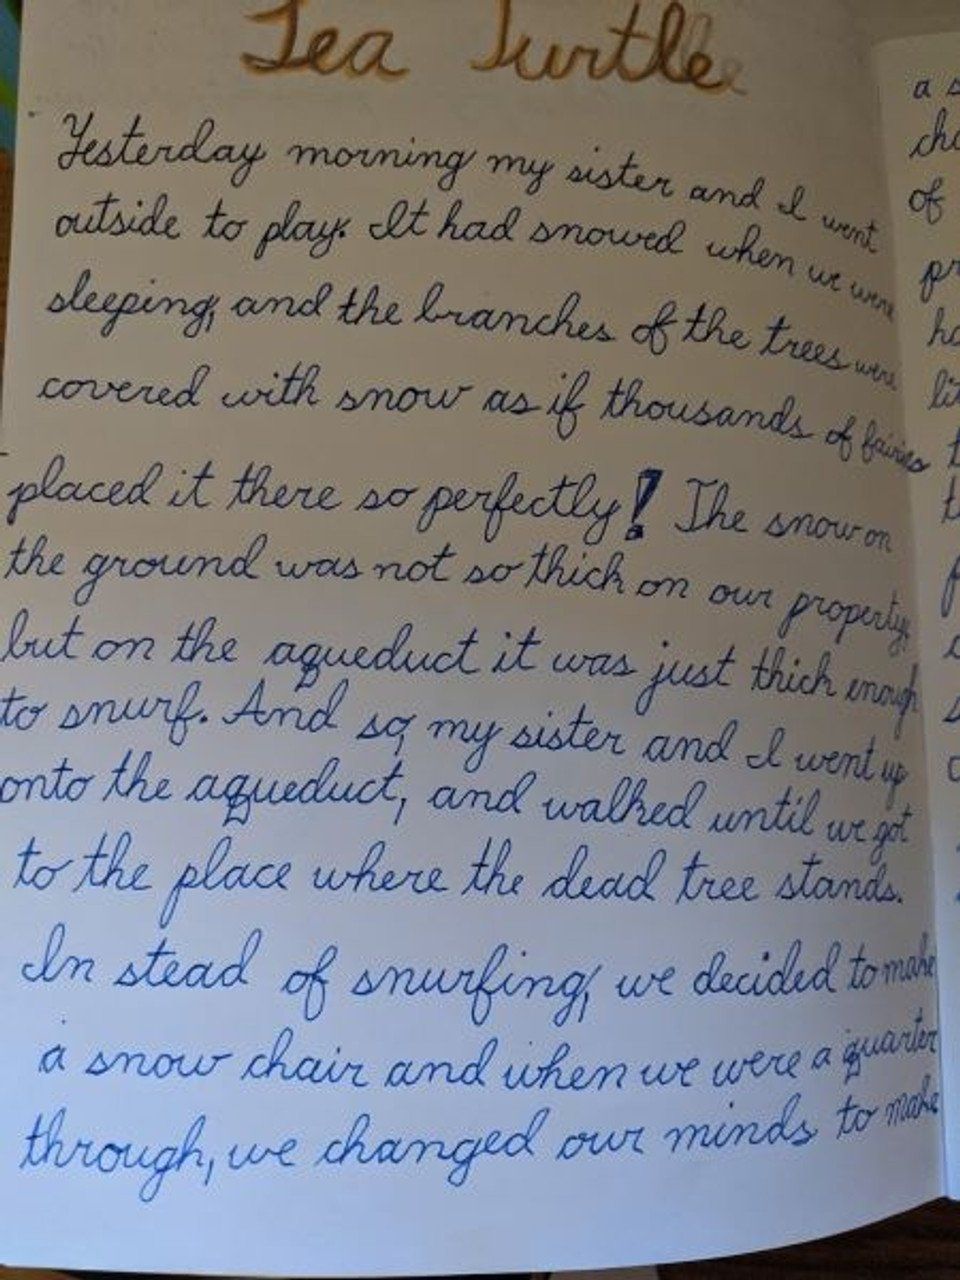 Sea Turtle
Yesterday morning my sister and I went
outside to play. It had snowed when we were
sleeping, and the branches of the trees were
covered with snow as if thousands of fairies
placed it there so perfectly! The snow on
the ground was not so thick on our property,
but on the aqueduct it was just thick enough
to snurf. And so, my sister and I went up
onto the aqueduct, and walked until we got
to the place where the dead tree stands.
In stead of snurfing, we decided to make
a snow chair and when we were a quarter
through, we changed our minds to make
a
of